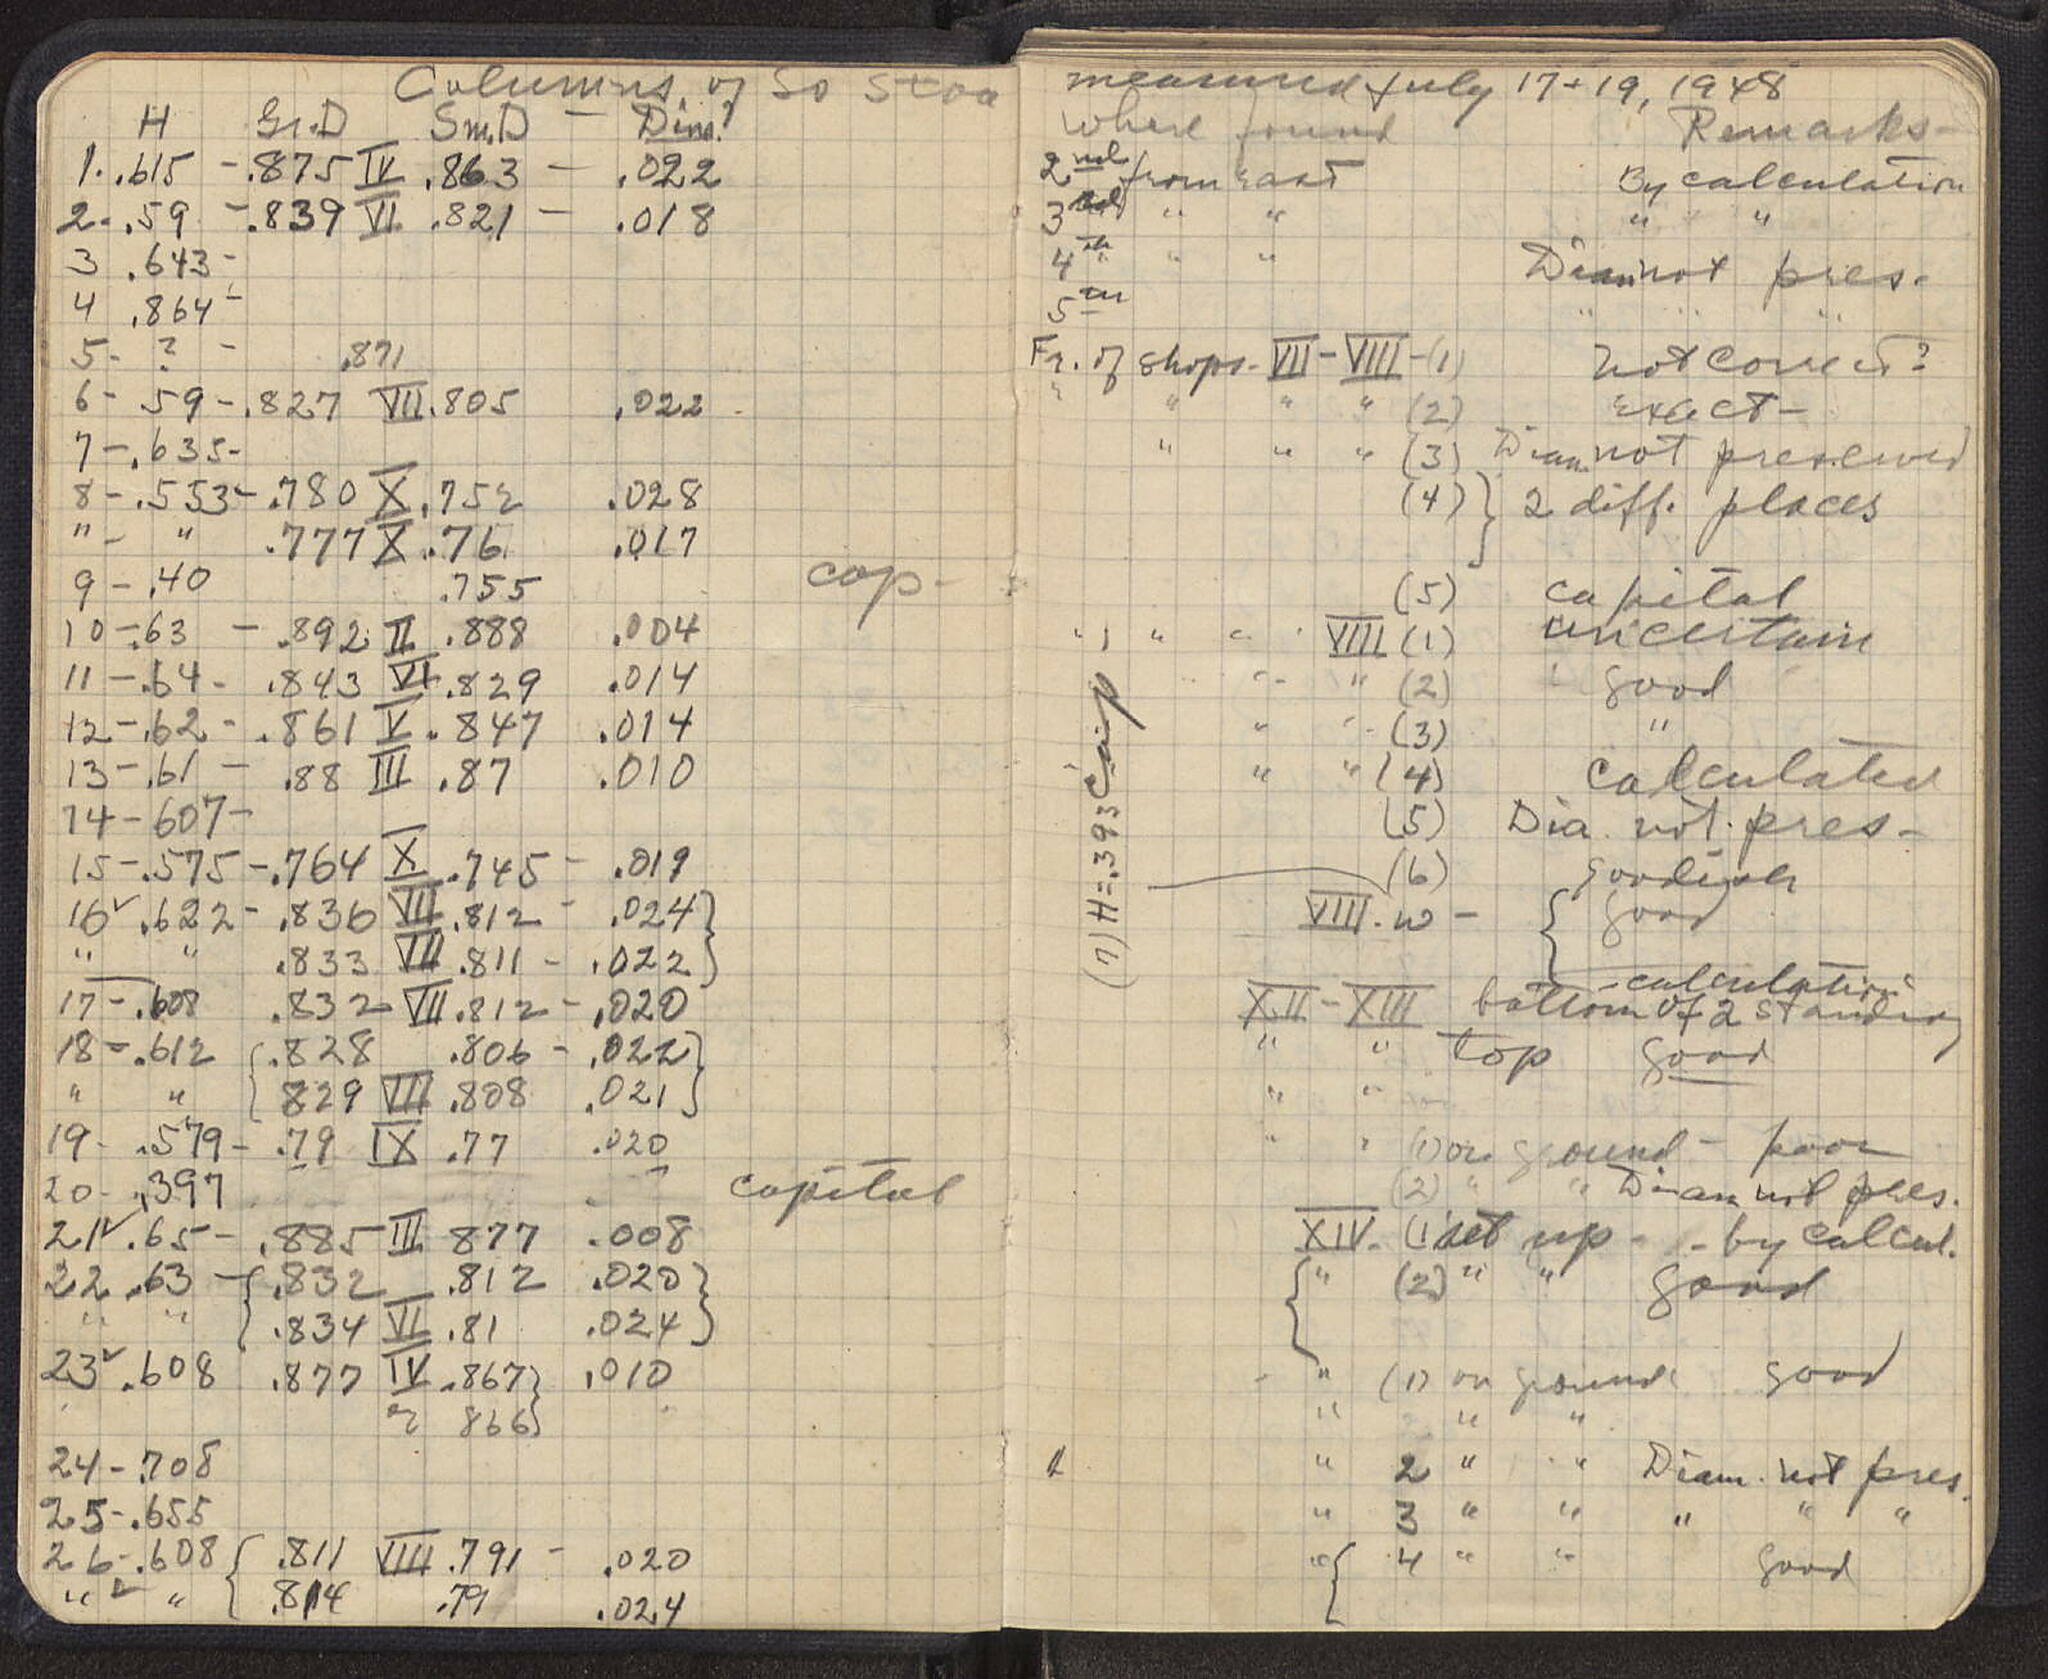 Columns of So Stoa
H Gr.D Sm.D - Dim.
1. .615 - .875 IV .863 - .022
2 - .59 - .839 VI .821 - .018
3 .643 -
4 .864 -
5 - ? - .871
6 - .59 - .827 VII .805 .022
7 - .635 -
8 - .553 - .780 X .752 .028
" - " .777 X .76 .017
9 - .40 .755 cap -
10 - .63 - .892 II .888 .004
11 - .64 - .843 VI .829 .014
12 - .62 - .861 V .847 .014
13 - .61 - .88 III .87 .010
14 - 607 -
15 - .575 - .764 X .745 - .019
16 .622 - .836 VII .812 - .024
" " .833 VII .811 - .022
17 - .608 .832 - VII .812 - .020
18 - .612 .828 .806 - .022
" " 829 VIII .808 .021
19 - .579 - .79 IX .77 .020
20 - .397 capital
21 .65 - .885 III 877 .008
22 .63 - .832 .812 .020
" " .834 VII .81 .024
23 .608 .877 IV .867 .010
or 866
24 - .708
25 - .655
26 - .608 .811 VIII .791 - .020
" " .814 .79 .024
measured July 17 + 19, 1948
Where found Remarks -
2nd from East By calculation
3rd " " " "
4th " " Diam not pres -
5th " " "
Fr. of shops - VII - VIII - (1) not correct?
" " " " (2) exact -
" " " (3) Diam not preserved
(4) 2 diff. places
(5) capital
" " " VIII (1) uncertain
" " (2) good
" " (3) "
" " (4) calculated
(5) Dia. not. pres -
(6) goodish
(7) H = .393 Cap
VIII. W - good
calculation
XII - XIII bottom of 2 standing
" " top good
" "
" " (1) on ground - poor
(2) " " Diam not pres.
XIV - (1) set up - - by calcul.
" (2) " " good
- " (1) on ground good
" " "
" 2 " " Diam. not pres.
" 3 " " " " "
" 4 " " good